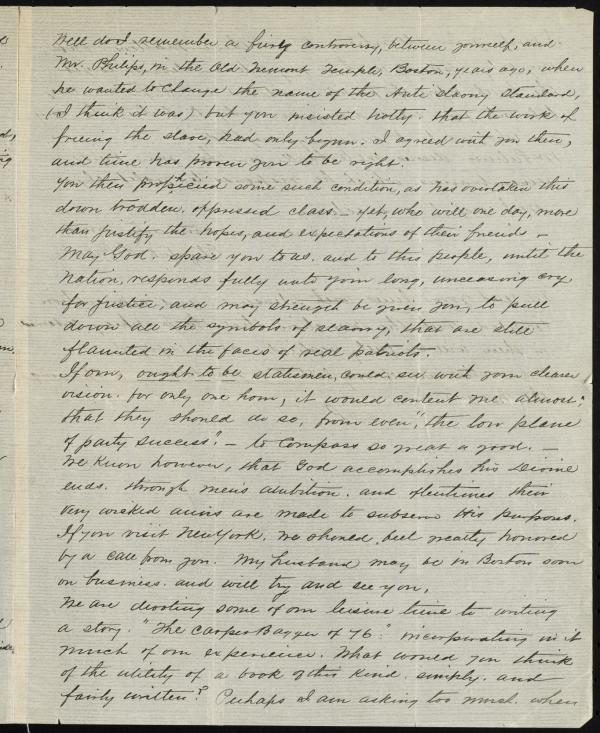 Well do I remember a firey controversy, between yourself, and
Mr. Philips, in the Old Tremont Temple, Boston, years ago, when
he wanted to change the name of the Anti Slavery Standard,
(I think it was) but you insisted hotly. that the work of
freeing the slave, had only begun. I agreed with you then,
and time has proven you to be right.
You then prophecied some such condition, as has overtaken this
down trodden. oppressed class — yet, who will one day, more
than justify the hopes, and expectations of their friends —
May God. spare you to us. and to this people, until the
Nation, responds fully unto your long, unceasing cry
for justice, and may strength be given you, to pull
down all the symbols of slavery, that are still
flaunted in the faces of real patriots.
If our, ought to be statesmen, could see with your clearer
vision. for only one hour, it would content me almost;
that they should do so, from even, "the low plane
of party success". — to compass so great a good. —
We know however, that God accomplishes His Divine
ends. through men's ambition. and oftentimes their
very wicked aims are made to subserve His purposes.
If you visit New York. we should, feel greatly honored
by a call from you. My husband may be in Boston soon
on business. and will try and see you.
We are devoting some of our leisure time to writing
a story. "The Carpet Bagger of 76." incorporating in it
much of our experience. What would you think
of the utility of a book of this kind. simply. and
fairly written? Perhaps I am asking too much. when